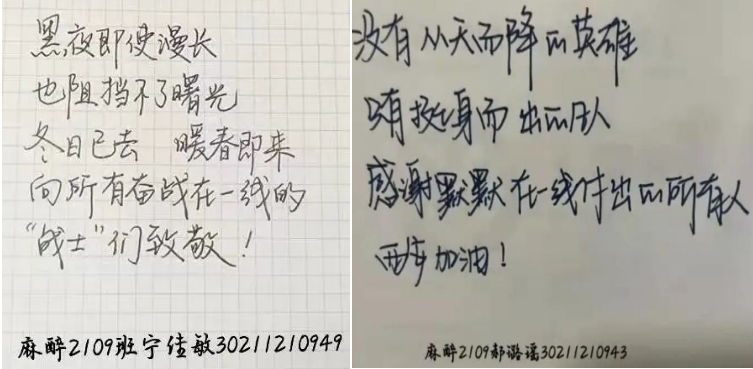 黑夜即使漫长
也阻挡不了曙光
冬日已去 暖春即来
向所有奋战在一线的
“战士”们致敬！
麻醉2109班宁佳敏30211210949
没有从天而降的英雄
只有挺身而出的凡人
感谢默默在一线付出的所有人
西安加油！
麻醉2109郝潞谣30211210943